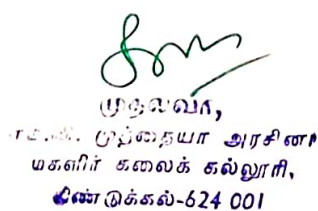 முதலவர்,
முத்தையா அரசினர்
மகளிர் கலைக் கல்லூரி,
திண்டுக்கல்-624 001